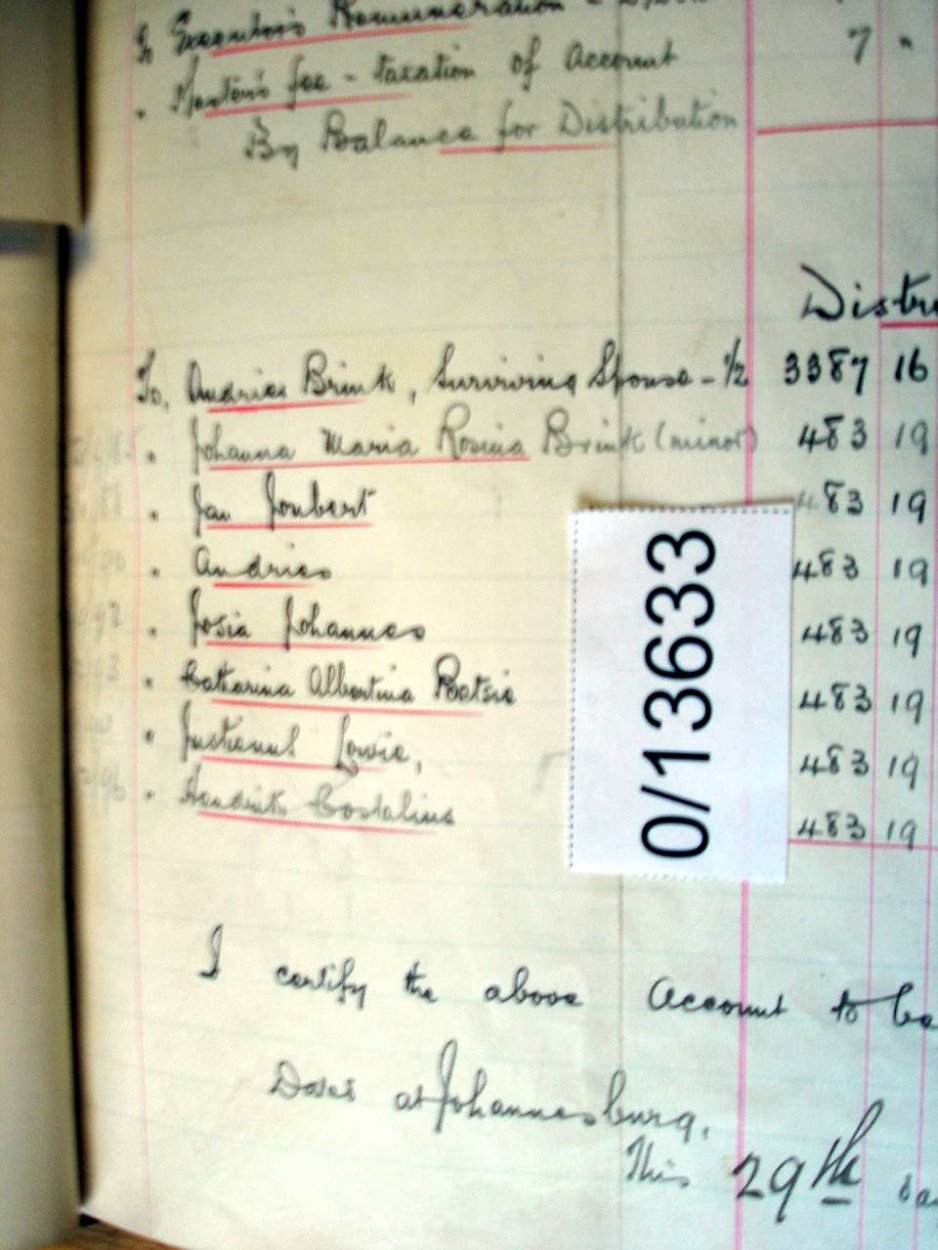 To Executor's Remuneration -
" Master's fee - taxation of Account 7 "
By Balance for Distribution
Distri
To, Andries Brink, Surviving Spouse - 1/2 3387 16
" Johanna Maria Rosina Brink (minor) 483 19
" Jan Joubert 483 19
" Andries 483 19
" Josia Johannes 483 19
" Catharina Albertina Poetsie 483 19
" Lowie, 483 19
" Hendrik 483 19
0/13633
I certify the above Account to be
Dated at Johannesburg,
This 29th da